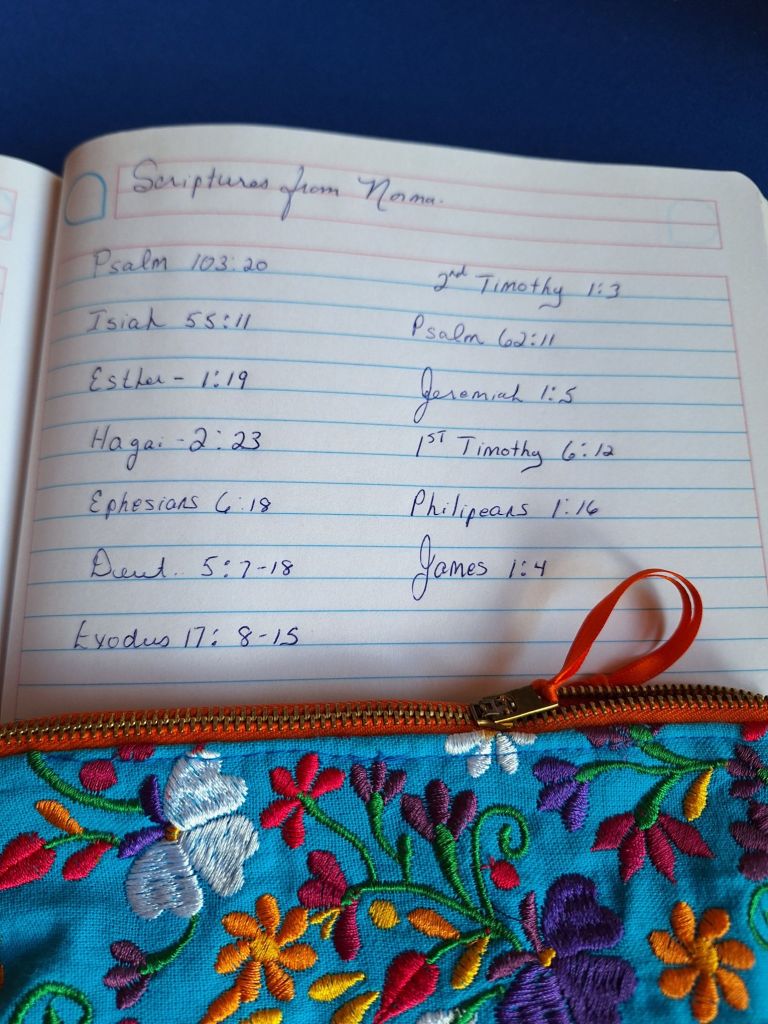 Scriptures from Norma.
Psalm 103:20
Isiah 55:11
Esther - 1:19
Hagai - 2:23
Ephesians 6:18
Duet. 5:7-18
Exodus 17: 8-15
2nd Timothy 1:3
Psalm 62:11
Jeremiah 1:5
1ST Timothy 6:12
Philipeans 1:16
James 1:4